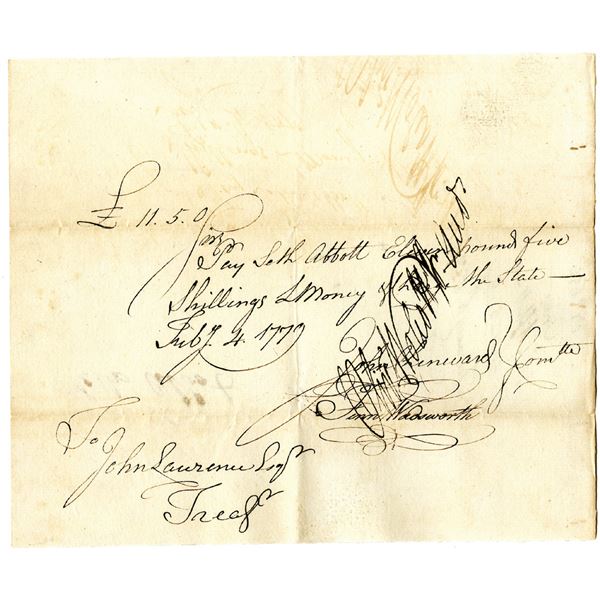 £ 11.5.0
Sir
Pay Seth Abbott Eleven pounds five
Shillings L Money & Charge the State —
Feby. 4. 1779
Comtte
Fenn Wadsworth
To
John Lawrence Esqr
Treasr